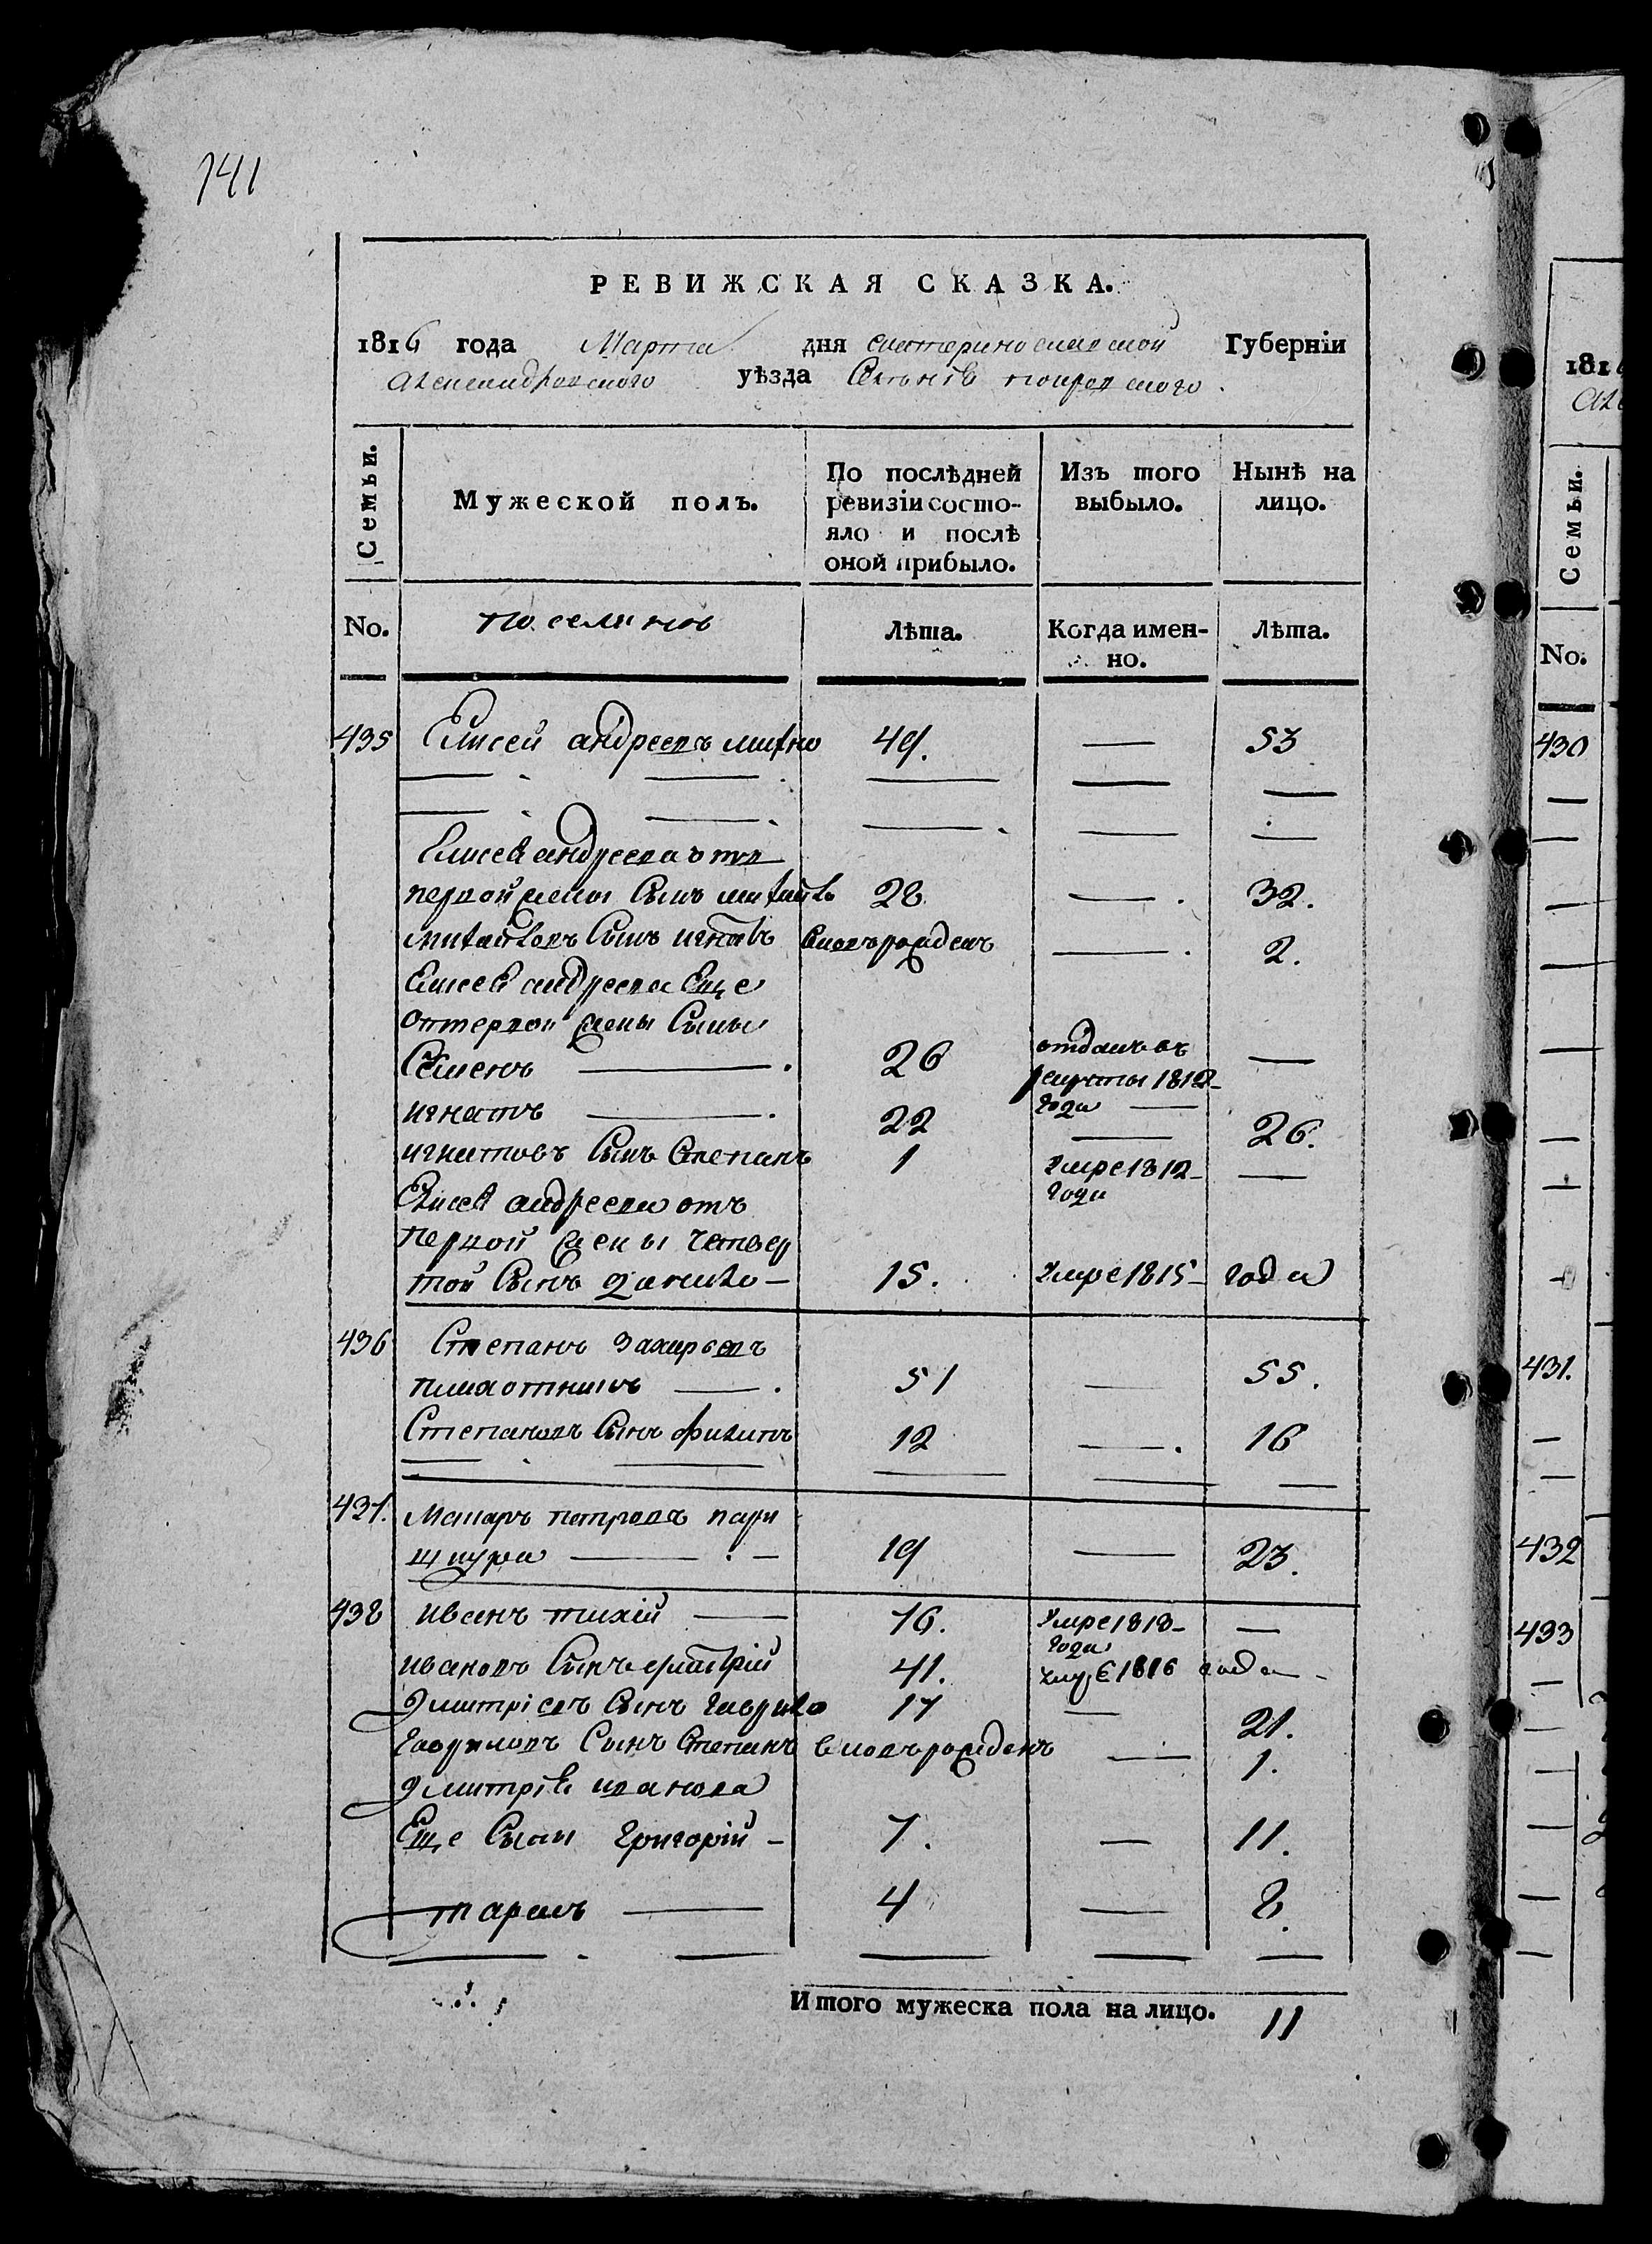 141
РЕВИЖСКАЯ СКАЗКА.
1816 года Марта дня екатеринославской Губерніи
александровского уѣзда Селенія покровского.
Семьи.
Мужеской полъ.
По послѣдней ревизіи состо-
яло и послѣ
оной прибыло.
Изъ того
выбыло.
Нынѣ на
лицо.
No.
поселянов
Лѣта.
Когда имен-
но.
Лѣта.
435 Елисей андреевъ 49. — 53
Елисея андреева отъ
первой жены Сынъ михайло 28. — 32.
михайловъ Сынъ игнатъ вновь рожденъ — 2.
Елисея андреева Еще
отпервой жены Сыны
Семенъ — 26 отданъ въ
рекруты 1812-
года —
игнатъ — 22 — 26.
игнатовъ Сынъ Степанъ 1 умре 1812-
года —
Елисея андреева отъ
первой жены четвер
той Сынъ данило — 15. умре 1815- года
436 Степанъ Захарьевъ
плахотникъ — 51 — 55.
Степановъ Сынъ филипъ 12 — 16
437. Макаръ петровъ пари
щкура — 19 — 23.
438 иванъ тихій — 76. умре 1813-
года —
ивановъ Сынъ дмитрій 41. умре 1816 года -
дмитріевъ Сынъ гаврило 17 — 21.
гавриловъ Сынъ Степанъ вновъ рожденъ — 1.
дмитрія иванова
Еще Сыны григорій - 7. — 11.
тарасъ — 4 — 8.
Итого мужеска пола на лицо. 11
1816
Семьи.
No.
430
431.
432
433